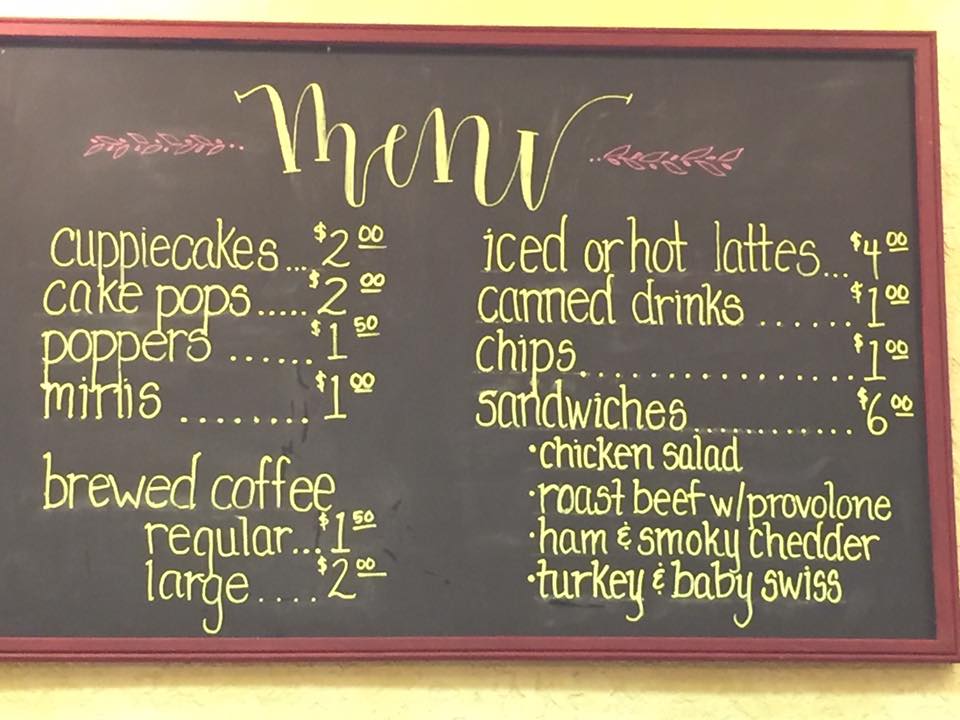 menu
cuppiecakes...$2 00
cake pops.....$2 00
poppers ......$1 50
minis ........$1 00
brewed coffee
regular...$1 50
large....$2 00
iced or hot lattes...$4 00
canned drinks ......$1 00
chips.................$1 00
sandwiches...........$6 00
·chicken salad
·roast beef w/provolone
·ham & smoky chedder
·turkey & baby swiss